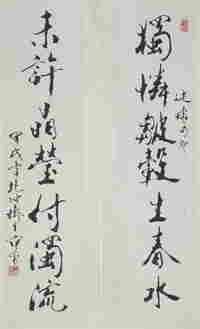 獨憐皺縠生春水
未許晶瑩付濁流
甲戌